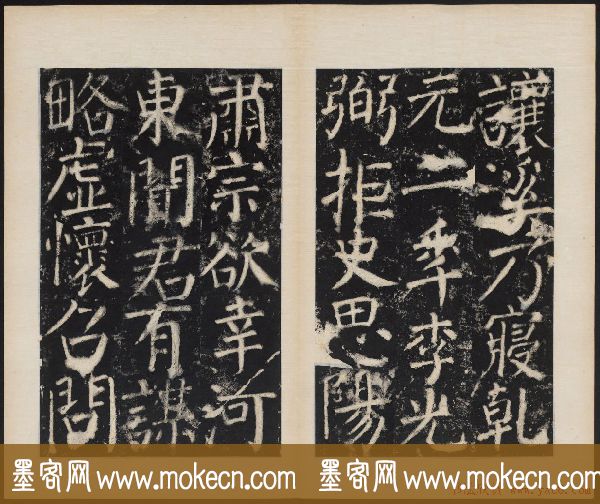 讓溪乃寢乾
元二秊李光
弼拒史思陽
肅宗欲幸河
東聞君有謀
略虛懷召問
墨客网 www.mokecn.com
墨客网 www.mokecn.com